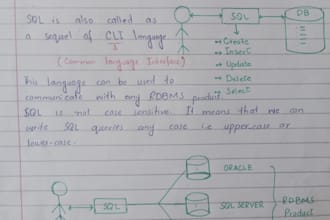 SQL is also called as
a sequel of CLI language.
(Common language Interface)
SQL
DB
→ Create
→ Insert
→ Update
→ Delete
→ Select
This language can be used to
communicate with any RDBMS product.
SQL is not case sensitive. It means that we can
write SQL queries any case i.e upper-case or
lower-case.
SQL
ORACLE
SQL SERVER
RDBMS
Product